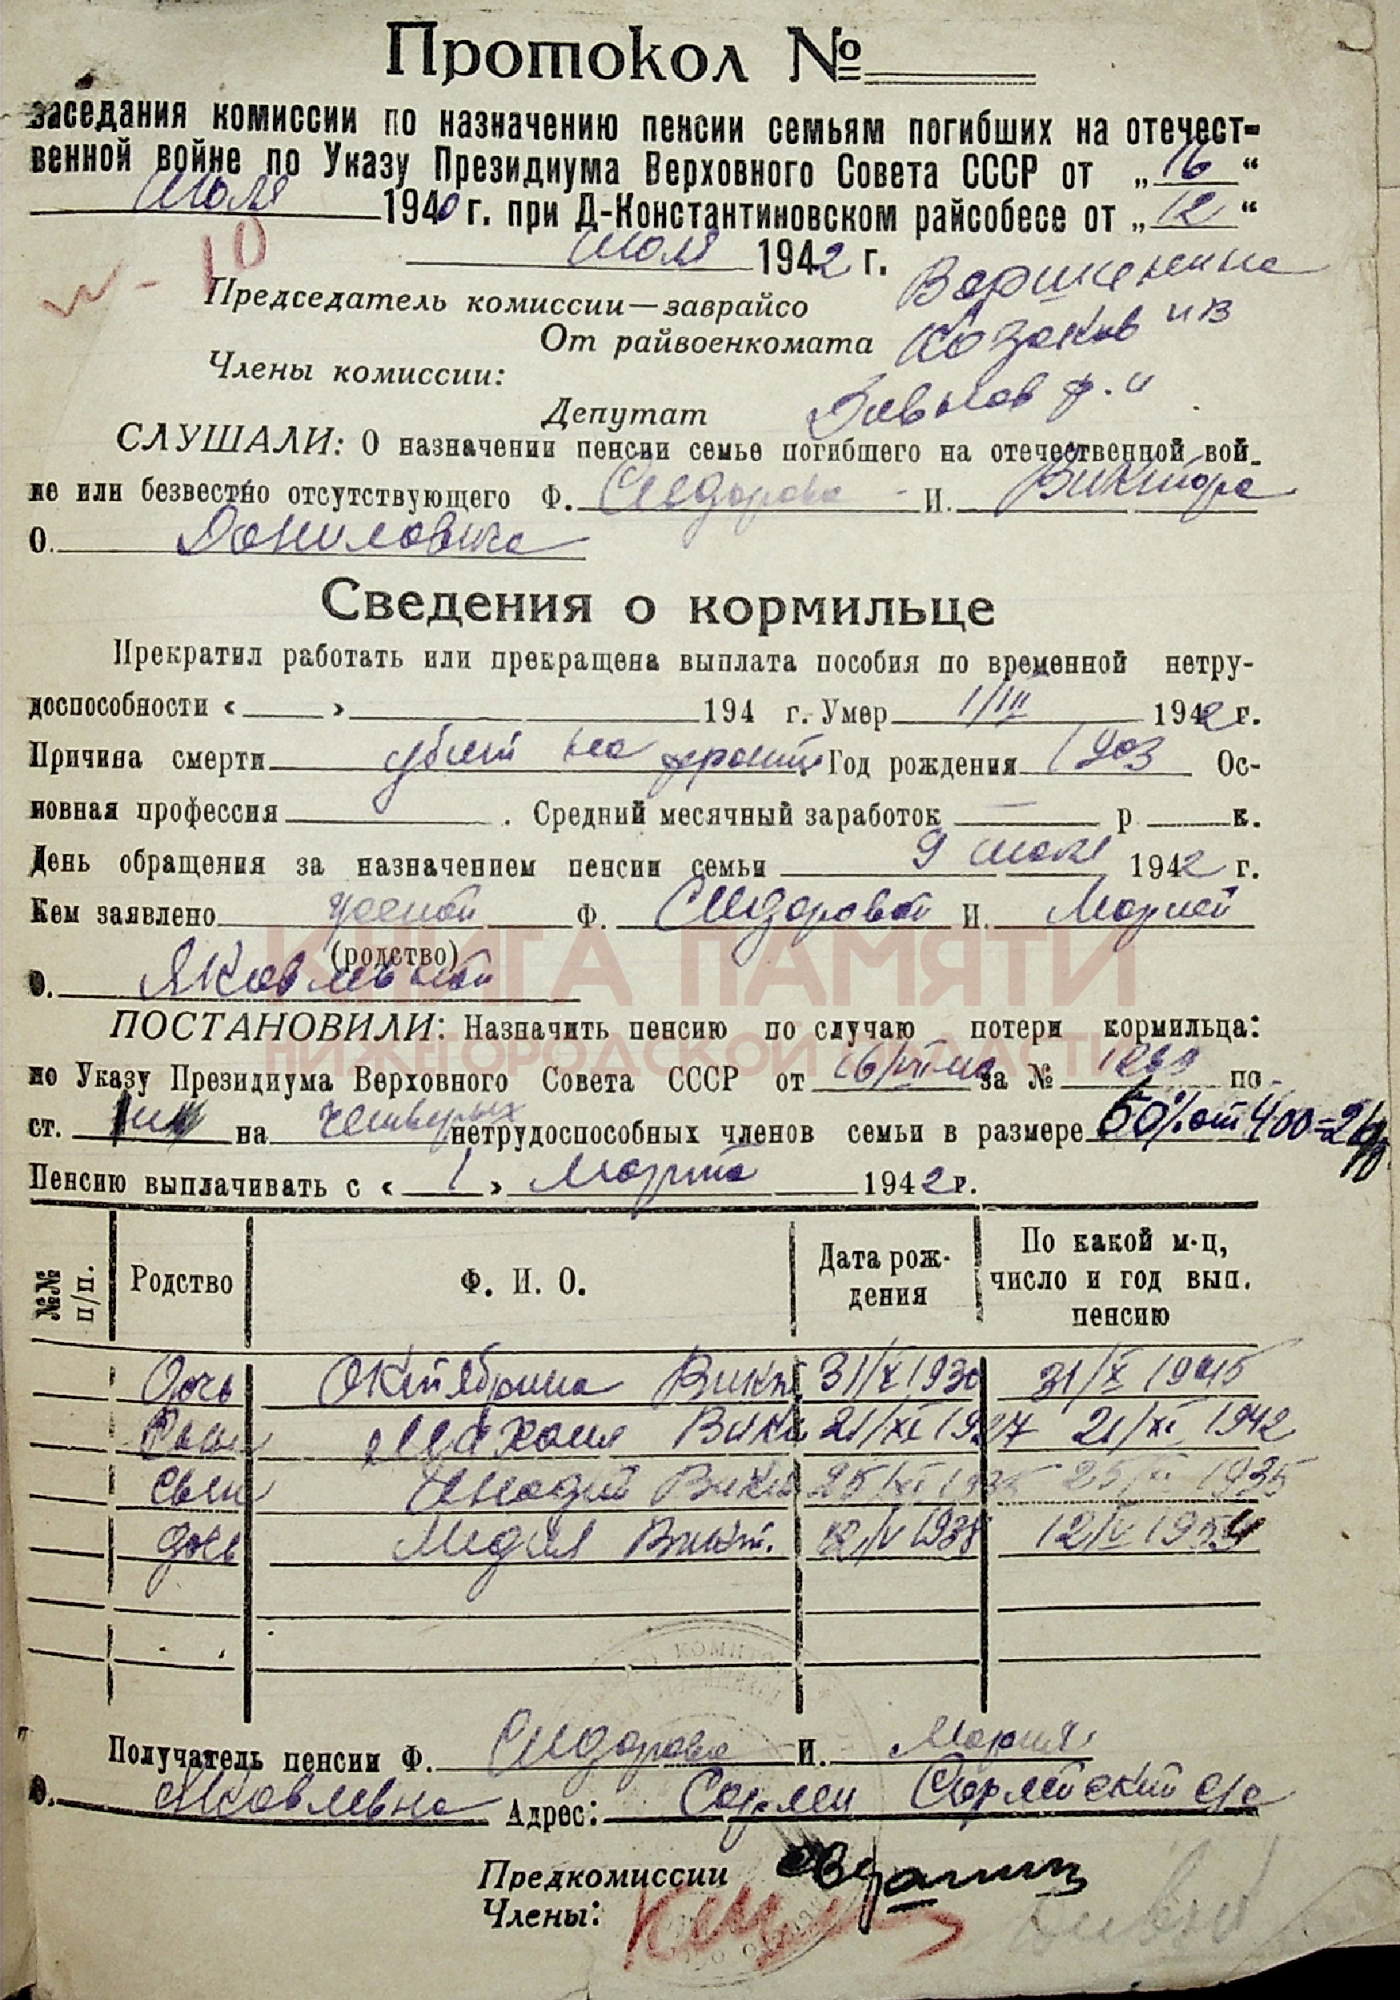 Протокол №
заседания комиссии по назначению пенсии семьям погибших на отечест-
венной войне по Указу Президиума Верховного Совета СССР от „16“
июля 1940 г. при Д-Константиновском райсобесе от „12“
июля 1942 г.
10
Председатель комиссии—заврайсо
От райвоенкомата Козаков ИВ
Члены комиссии:
Депутат Ф. И
СЛУШАЛИ: О назначении пенсии семье погибшего на отечественной вой-
не или безвестно отсутствующего Ф. Сидорова И. Виктора
О. Даниловича
Сведения о кормильце
Прекратил работать или прекращена выплата пособия по временной нетру-
доспособности « » 194 г. Умер 1/III 1942 г.
Причина смерти убит на фронте Год рождения 1903 Ос-
новная профессия . Средний месячный заработок — р к.
День обращения за назначением пенсии семьи 9 июля 1942 г.
Кем заявлено женой Ф. Сидоровой И. Марией
(родство)
О. Яковлевной
КНИГА ПАМЯТИ
НИЖЕГОРОДСКОЙ ОБЛАСТИ
ПОСТАНОВИЛИ: Назначить пенсию по случаю потери кормильца:
по Указу Президиума Верховного Совета СССР от 16/VII-40 за № 1269 по
ст. на четверых нетрудоспособных членов семьи в размере 60% от 400=240
Пенсию выплачивать с «1» марта 1942 г.
№№ п/п. Родство Ф. И. О. Дата рож-
дения По какой м-ц,
число и год вып.
пенсию
Дочь Октябрина Викт 31/X 1930 31/X 1945
Сын Викт 21/XI 1927 21/XI 1942
сын Генадий Викт 25/XI 1935 25/XI 1935
дочь Лидия Викт. 12/V 1938 12/V 1954
Получатель пенсии Ф. Сидорова И. Мария
О. Яковлевна Адрес: Сарлеи Сарлейский с/с
Предкомиссии
Члены: